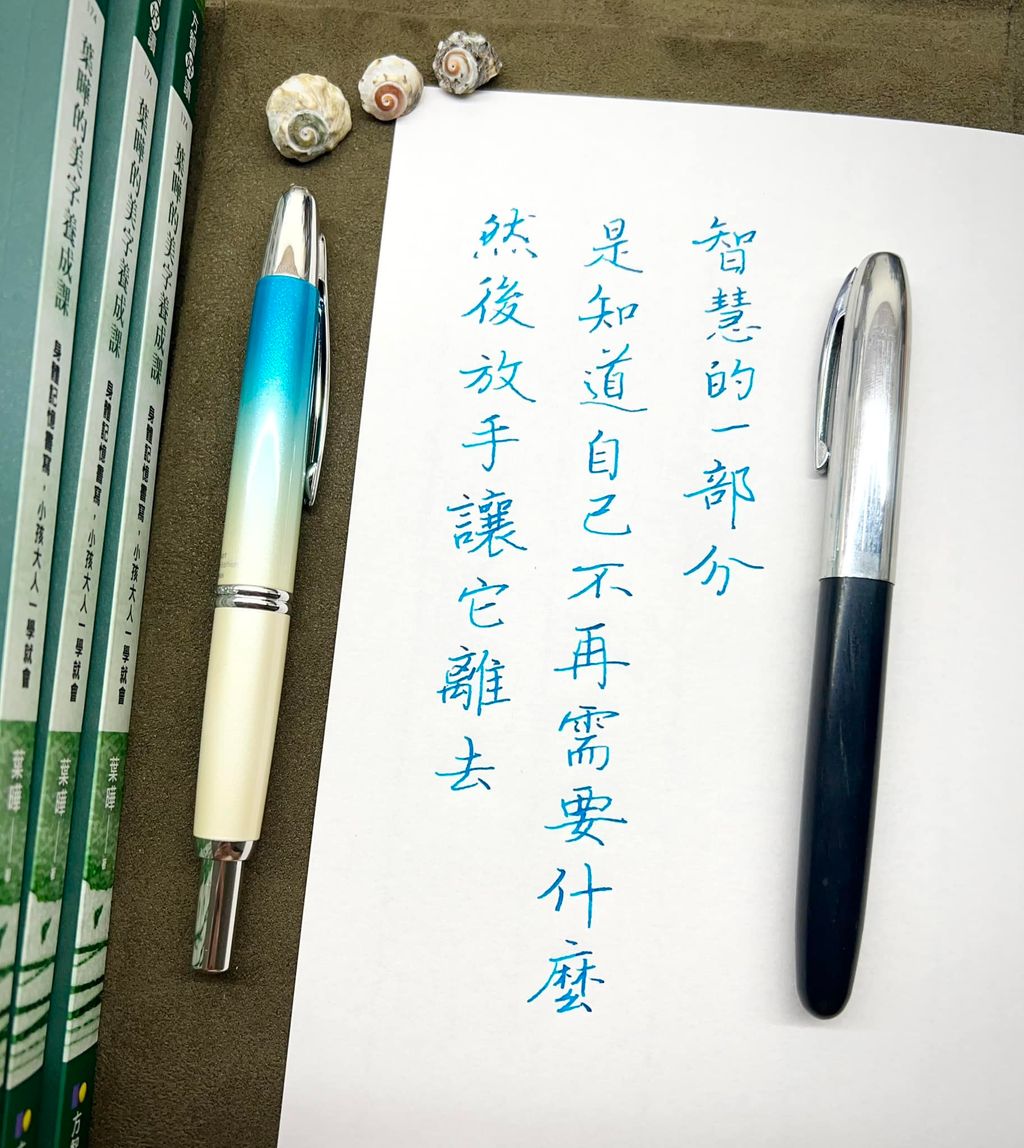 智慧的一部分
是知道自己不再需要什麼
然後放手讓它離去
174
葉曄的美字養成課
身體記憶書寫，小孩大人一學就會
葉曄
174
葉曄的美字養成課
身體記憶書寫，小孩大人一學就會
葉曄
174
葉曄的美字養成課
身體記憶書寫，小孩大人一學就會
葉曄
方智